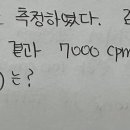 측정하였다.
결과 7000 cpm
는?